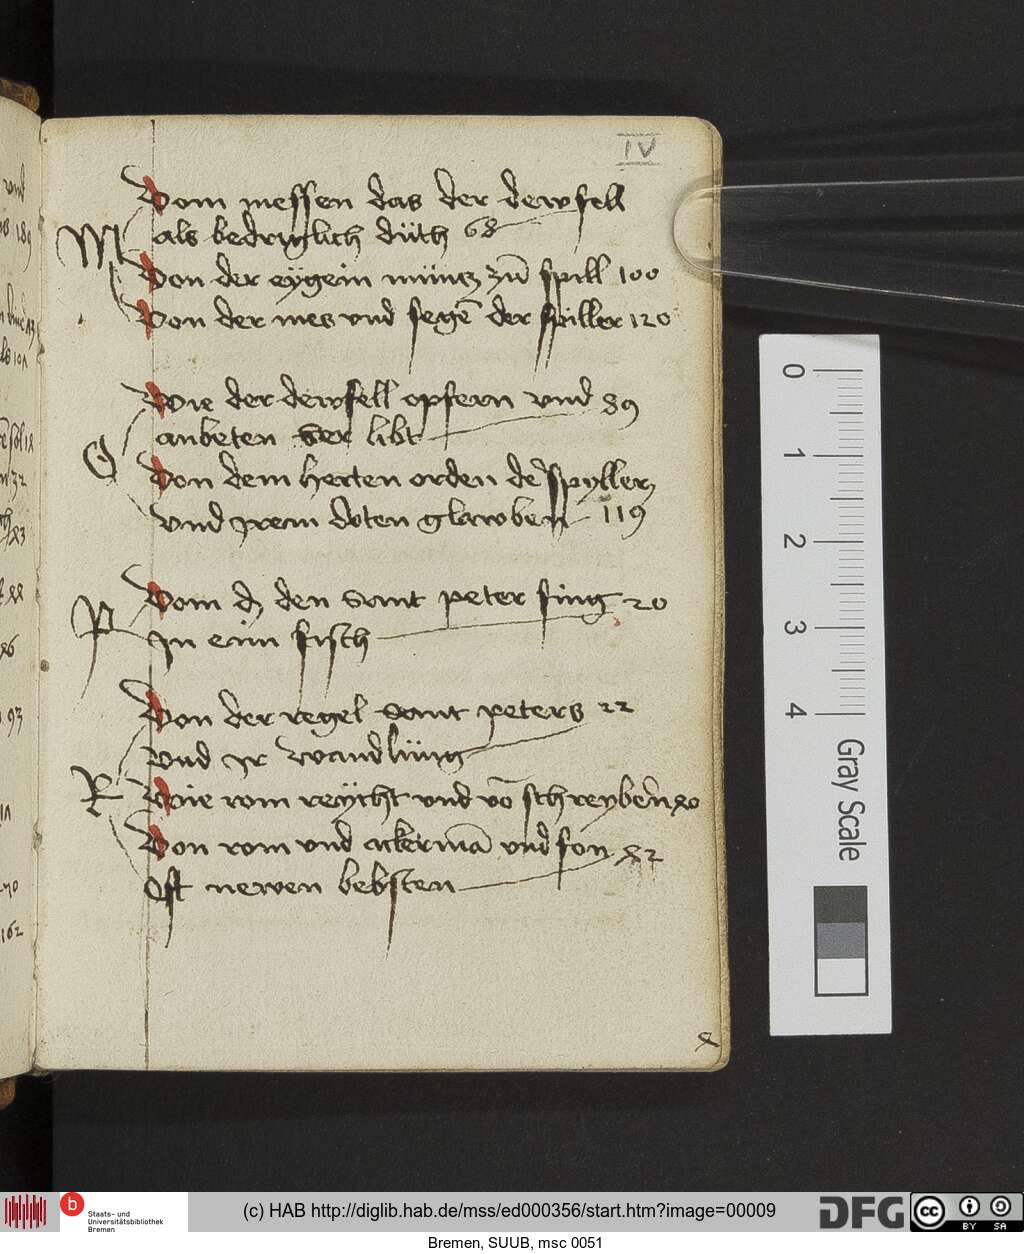 IV
Vom messen das der dewfell
als bedryglich düth 68
M
Von der eygein müntz zů spill 100
Von der mes vnd segē der spiller 120
Wie der dewfell opfern vnd 89
anbeten ler libt
O
Von dem herten orden der spyller
vnd jrem doten glawben 119
Vom dz den sant peter fing 20
P
In eim fisch
Von der regel sant peters 22
vnd jr wandlüng
R
Wie rom reycht vnd vō schreyben 80
Von rom vnd ackermā vnd son 82
Ost newen bebsten
0
1
2
3
4
Gray Scale
b
Staats- und
Universitätsbibliothek
Bremen
(c) HAB http://diglib.hab.de/mss/ed000356/start.htm?image=00009
DFG
cc
BY SA
Bremen, SUUB, msc 0051